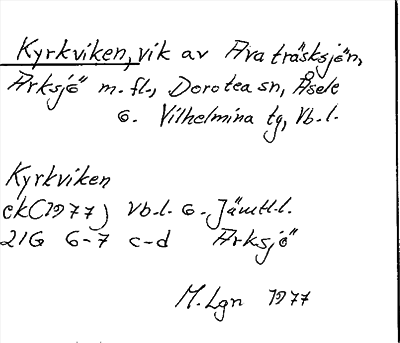 Kyrkviken, vik av Avaträsksjön,
Arksjö m.fl., Dorotea sn, Åsele
o. Vilhelmina tg, Vb.l.
Kyrkviken
ek(1977) Vb.l. o. Jämtl.l.
21G 6-7 c-d Arksjö
M. Lgn 1977